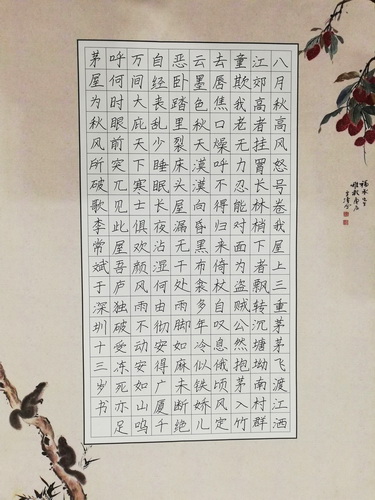 八月秋高风怒号卷我屋上三重茅茅飞渡江洒
江郊高者挂罥长林梢下者飘转沉塘坳南村群
童欺我老无力忍能对面为盗贼公然抱茅入竹
去唇焦口燥呼不得归来倚杖自叹息俄顷风定
云墨色秋天漠漠向昏黑布衾多年冷似铁娇儿
恶卧踏里裂床头屋漏无干处雨脚如麻未断绝
自经丧乱少睡眠长夜沾湿何由彻安得广厦千
万间大庇天下寒士俱欢颜风雨不动安如山呜
呼何时眼前突兀见此屋吾庐独破受冻死亦足
茅屋为秋风所破歌李常斌于深圳十三岁书